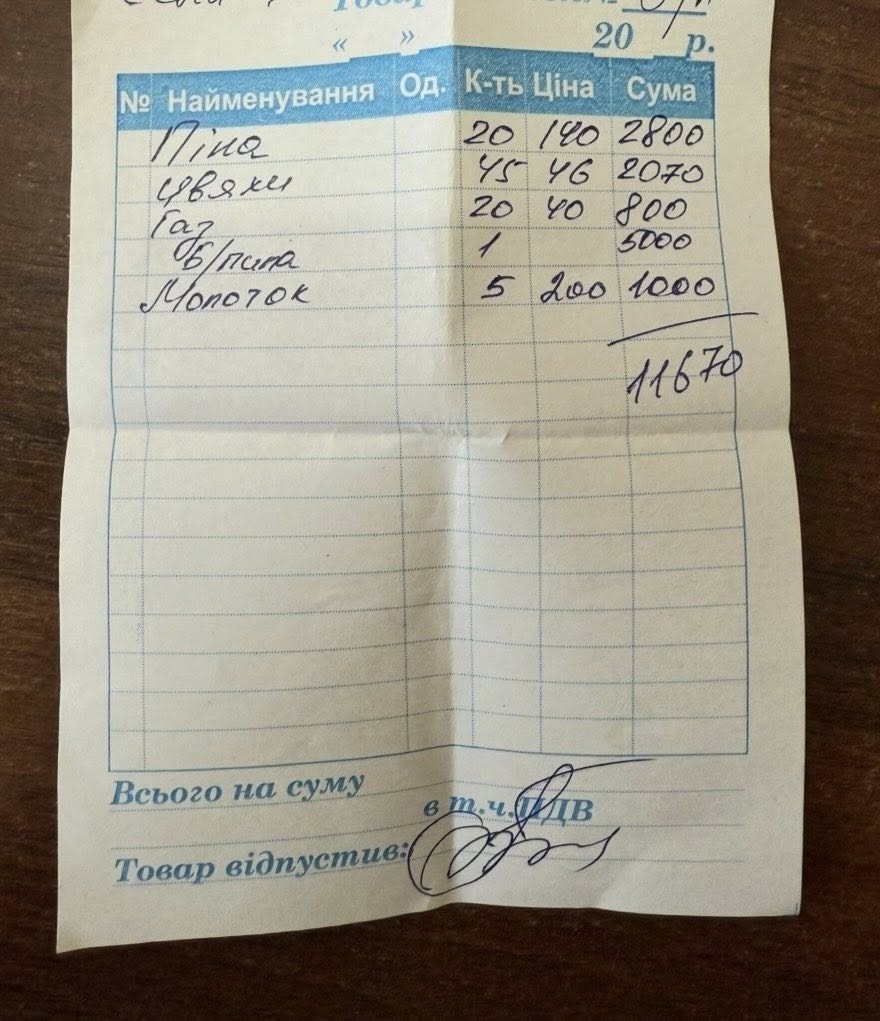 Товар
« » 20 р.
№ Найменування Од. К-ть Ціна Сума
Піна 20 140 2800
Цвяхи 45 46 2070
Газ 20 40 800
Б/пила 1 5000
Молоток 5 200 1000
11670
Всього на суму
в т.ч.ПДВ
Товар відпустив: